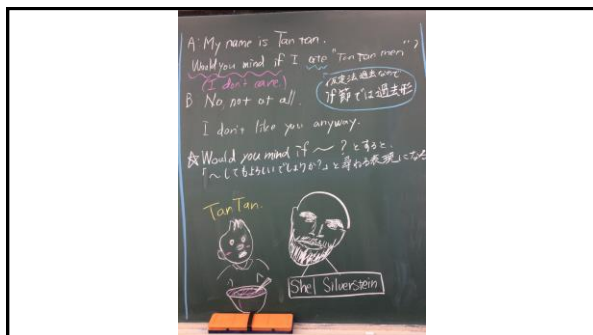 A: My name is Tan tan.
Would you mind if I ate "Tan tan men"?
(I don't care)
仮定法過去なので
if節では過去形
B No, not at all.
I don't like you anyway.
☆Would you mind if ～? とすると、
「～してもよろしいでしょうか?」と尋ねる表現になる
TanTan.
Shel Silverstein